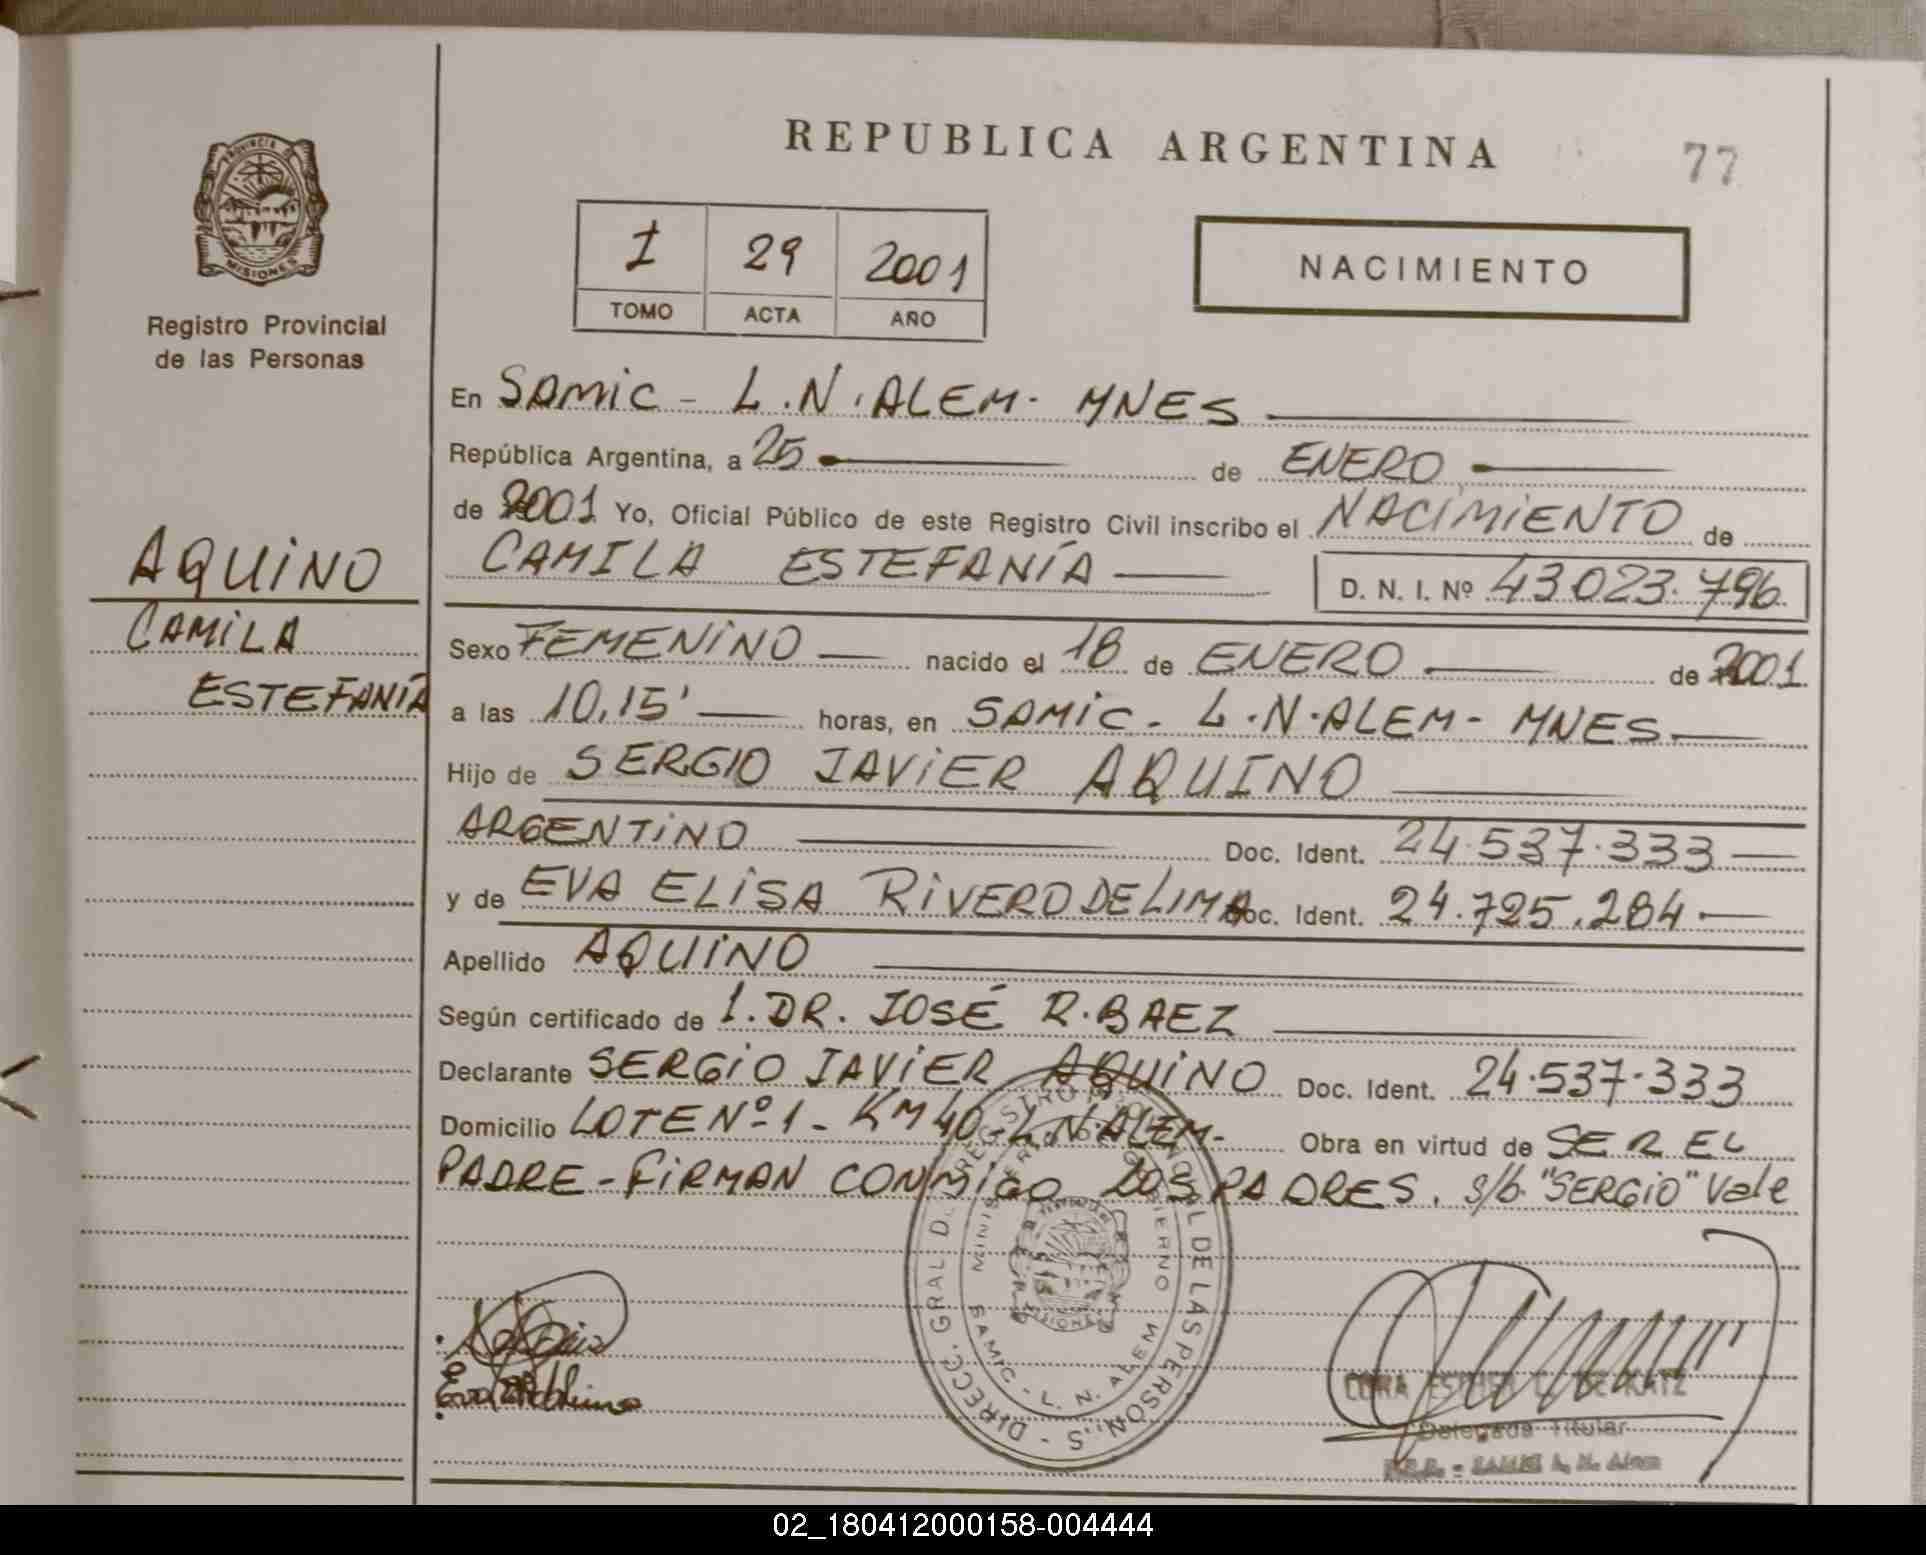 REPUBLICA ARGENTINA
77
PROVINCIA DE
MISIONES
Registro Provincial
de las Personas
I 29 2001
TOMO ACTA AÑO
NACIMIENTO
AQUINO
CAMILA
ESTEFANÍA
En SAMIC - L.N.ALEM- MNES
República Argentina, a 25 de ENERO
de 2001 Yo, Oficial Público de este Registro Civil inscribo el NACIMIENTO de
CAMILA ESTEFANÍA D. N. I. Nº 43.023.796
Sexo FEMENINO nacido el 18 de ENERO de 2001
a las 10,15' horas, en SAMIC - L.N.ALEM - MNES.
Hijo de SERGIO JAVIER AQUINO
ARGENTINO Doc. Ident. 24.537.333
y de EVA ELISA RIVERO DE LIMA Doc. Ident. 24.725.284
Apellido AQUINO
Según certificado de 1. DR. JOSÉ R. BAEZ
Declarante SERGIO JAVIER AQUINO Doc. Ident. 24.537.333
Domicilio LOTE Nº 1 - KM 40 - L.N.ALEM- Obra en virtud de SER EL
PADRE - FIRMAN CONMIGO LOS PADRES. s/b. "SERGIO" Vale
DIRECC. GRAL D. REGISTRO DE LAS PERSONAS
SAMIC - L. N. ALEM
Delegada Titular
02_180412000158-004444